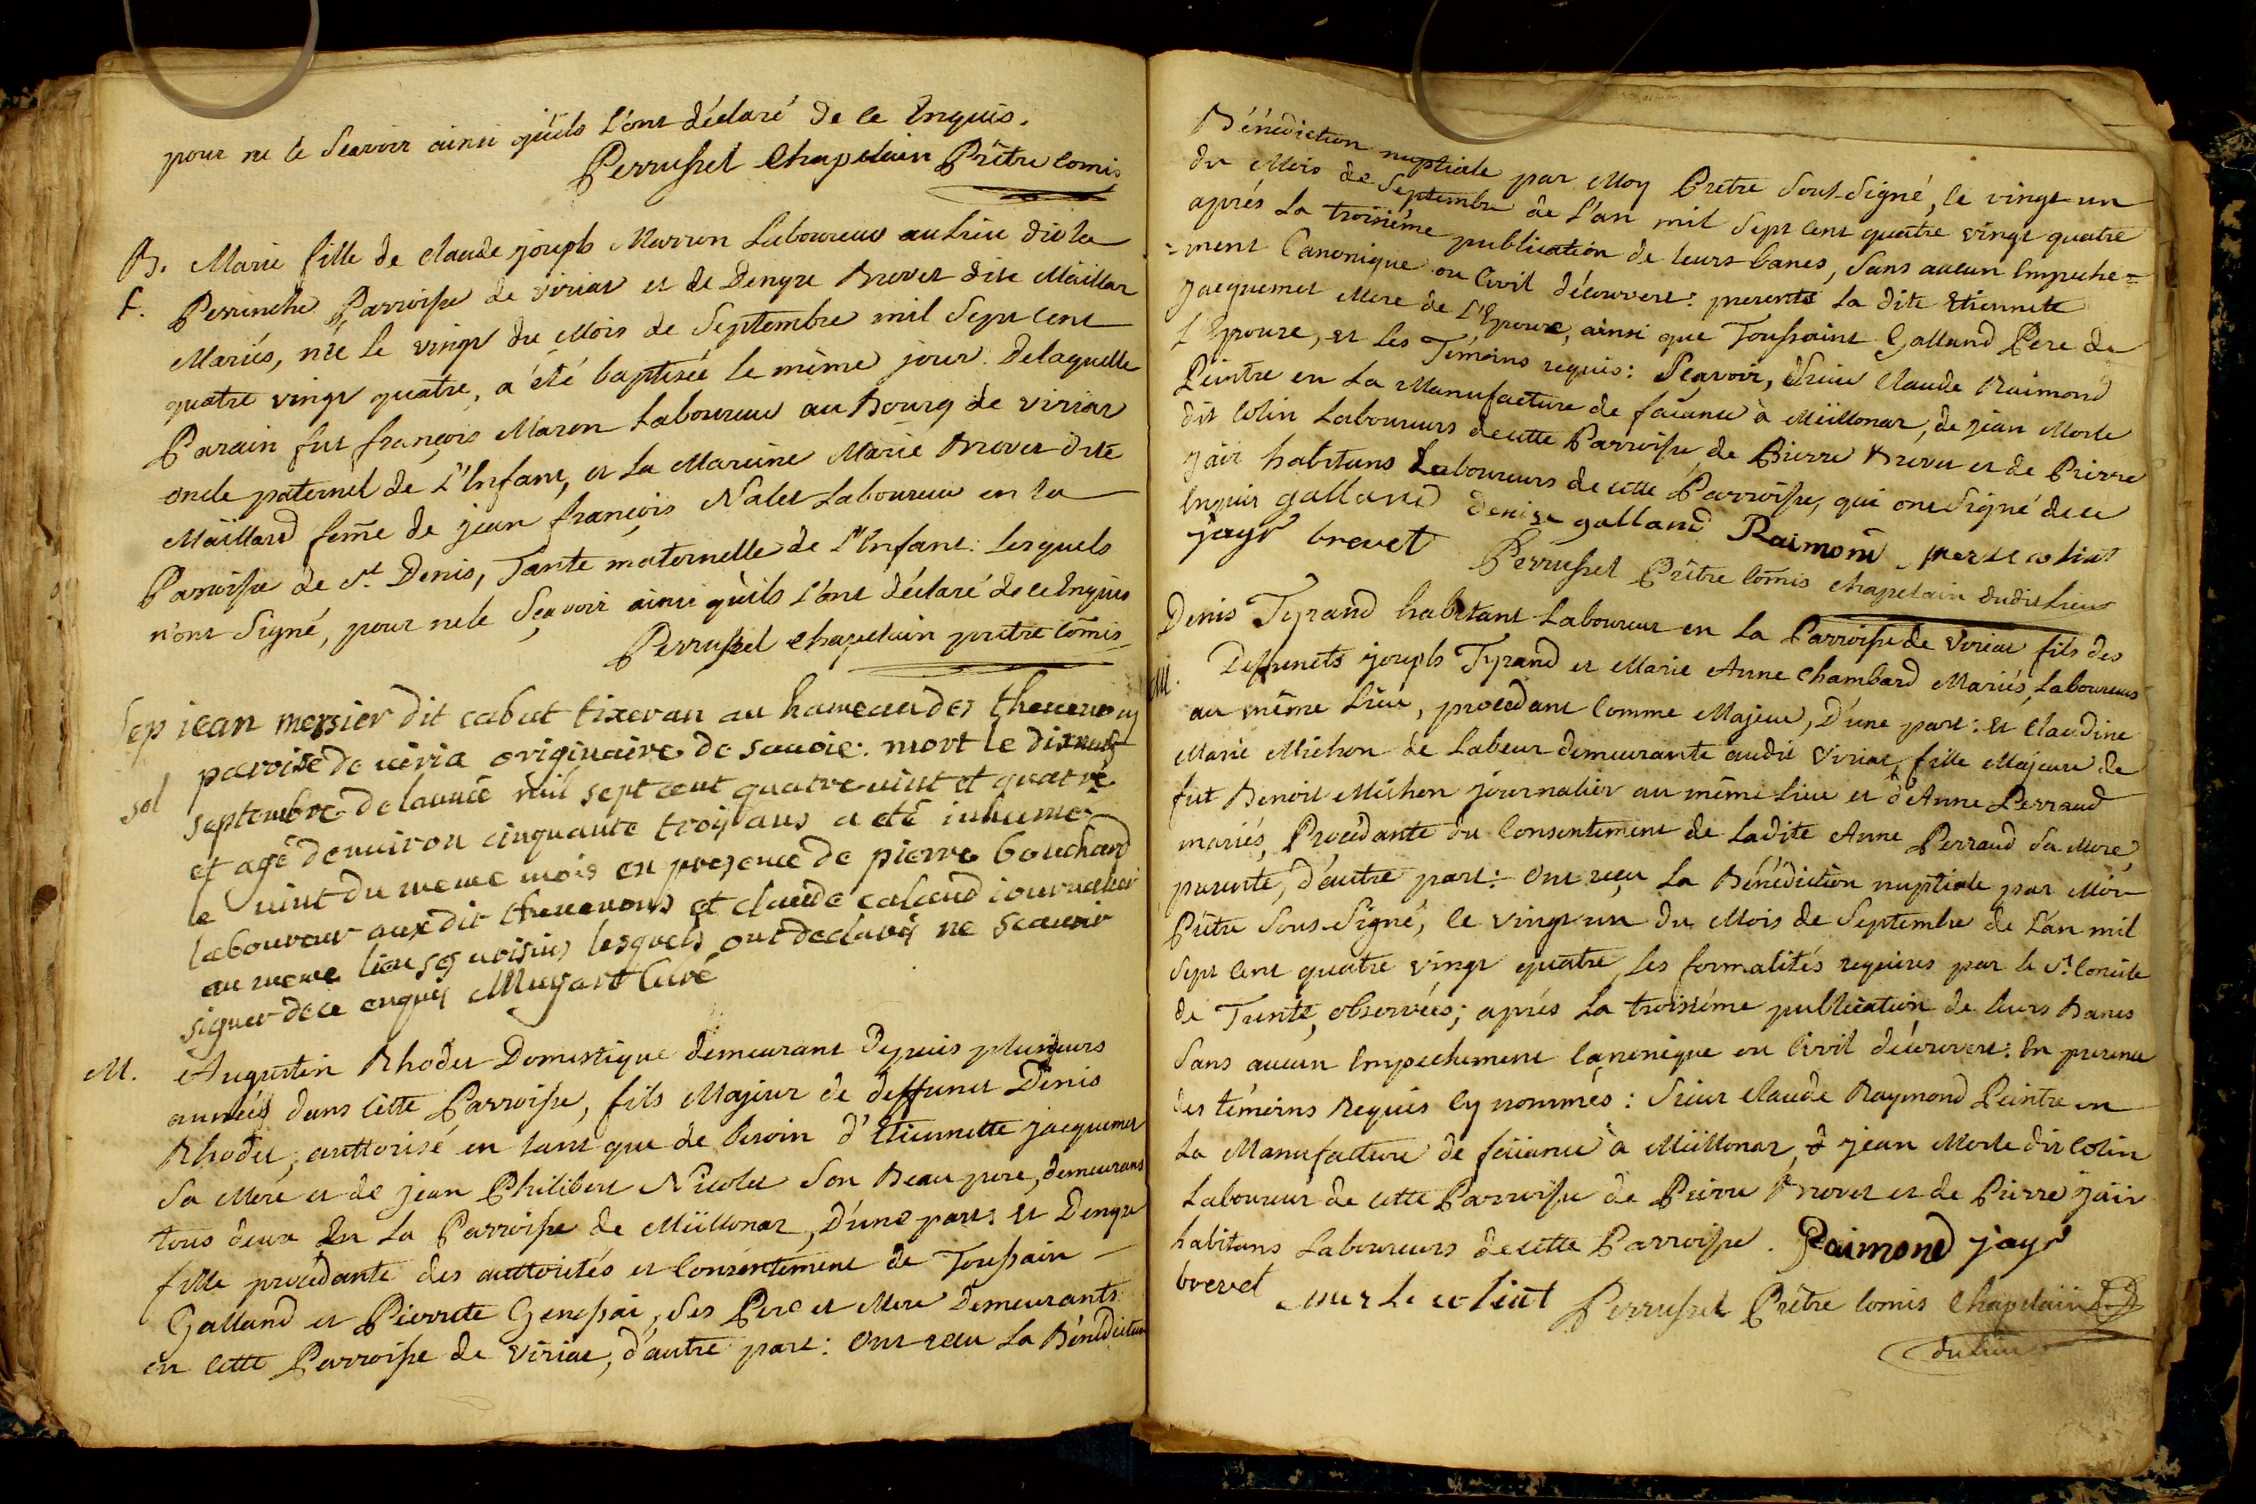 pour ne le Sçavoir ainsi qu'ils L'ont déclaré de ce Enquis.
Perrussel Chapelain Prêtre Comis
B. Marie fille de claude joseph Marron Laboureur au Lieu dit la
f. Perrinche Parroisse de viriat et de Denyse Brevet dite Maillar
Mariés, née Le vingt du Mois de Septembre mil Sept cent
quatre vingt quatre, a été baptisée le même jour. Delaquelle
Parain fut françois Maron Laboureur au Bourg de viriat
oncle paternel de L'Enfant, et La Mareine Marie Brovet dite
Maillard feme de jean françois Nalet Laboureur en La
Parroisse de St. Denis, Tante maternelle de L'Enfant: Lesquels
n'ont Signé, pour ne le Sçavoir ainsi qu'ils L'ont déclaré de ce Enquis
Perrussel Chapelain pretre comis
Sep jean mersier dit cabut tixeran au hameau des thevenons
paroise de viria originaire de savoie. mort le dixneuf
sol septembre de lannée mil sept cent quatre vint et quatre
et agé denviron cinquante troy ans a eté inhumé
le vint du meme mois en presence de pierre bouchard
laboureur auxdit thevenons et claude caland iournalier
au meme lieu ses voisins lesquels ont declarés ne scavoir
signer de ce enquis Curé
M. Augustin Rhodet Domestique demeurant depuis plusieurs
années dans Cette Parroisse, fils Majeur de deffunct Denis
Rhodet, authorisé en tant que de besoin d'Etiennette jacquemet
Sa Mere et de jean Philibert Nicolet Son Beau pere, demeurans
tous deux En La Parroisse de Miillonar, D'une part: et Denyse
fille procédante des authorités et Consentement de Toussain
Galland et Pierrette Genessai, Ses Pere et Mere Demeurants
en Cette Parroisse de viriat, d'autre part: Ont reçu La Bénédiction
Bénédiction nuptiale par Moy Prêtre Sous-Signé, le vingt un
du Mois de Septembre de L'an mil Sept Cent quatre vingt quatre
aprés La troisiéme publication de leurs bancs, Sans aucun Empeche=
=ment Canonique ou Civil découvert: presents La dite Etiennette
Jacquemet Mere de L'Epoux, ainsi que Toussaint Galland Pere de
L'Epouse, et Les Témoins requis: Sçavoir, Sieur Claude Raimond
Peintre en La Manufacture de faiance à Miillonar, de jean Merle
dit Colin Laboureurs de cette Parroisse de Pierre Brevet et de Pierre
jair habitans Laboureurs de cette Parroisse, qui ont Signé de ce
Enquis galland denise galland Raimond merle colin
jayr brevet Perrussel Prêtre Comis Chapelain dudit Lieu
Denis Tyrand habitant Laboureur en La Parroisse de viriat fils des
M. Defunets joseph Tyrand et Marie Anne Chambard Mariés, Laboureurs
au même Lieu, procedant Comme Majeur, D'une part: et Claudine
Marie Michon de Labeur demeurante audit Viriat, fille Majeure de
fut Benoit Michon journalier au même Lieu et d'Anne Perraud
mariés, Procédante du Consentement de Ladite Anne Perraud Sa Mere,
presente, d'autre part: Ont reçu La Bénédiction nuptiale par Moi
Prêtre Sous-Signé, le vingt un du Mois de Septembre de L'an mil
Sept Cent quatre vingt quatre Les formalités requises par le St. Concile
de Trente, observées; aprés La troisiéme publication de leurs Bancs
Sans aucun Empechement Canonique ou Civil découvert: En presence
des témoins Requis Cy nommés: Sieur Claude Raymond Peintre en
La Manufacture de faiance à Miillonar, & jean Merle dit Colin
Laboureur de cette Parroisse de Pierre Brovet et de Pierre jair
habitans Laboureurs de cette Parroisse. Raimond jayr
brevet merle colint Perrussel Prêtre Comis Chapelain
du Lieu